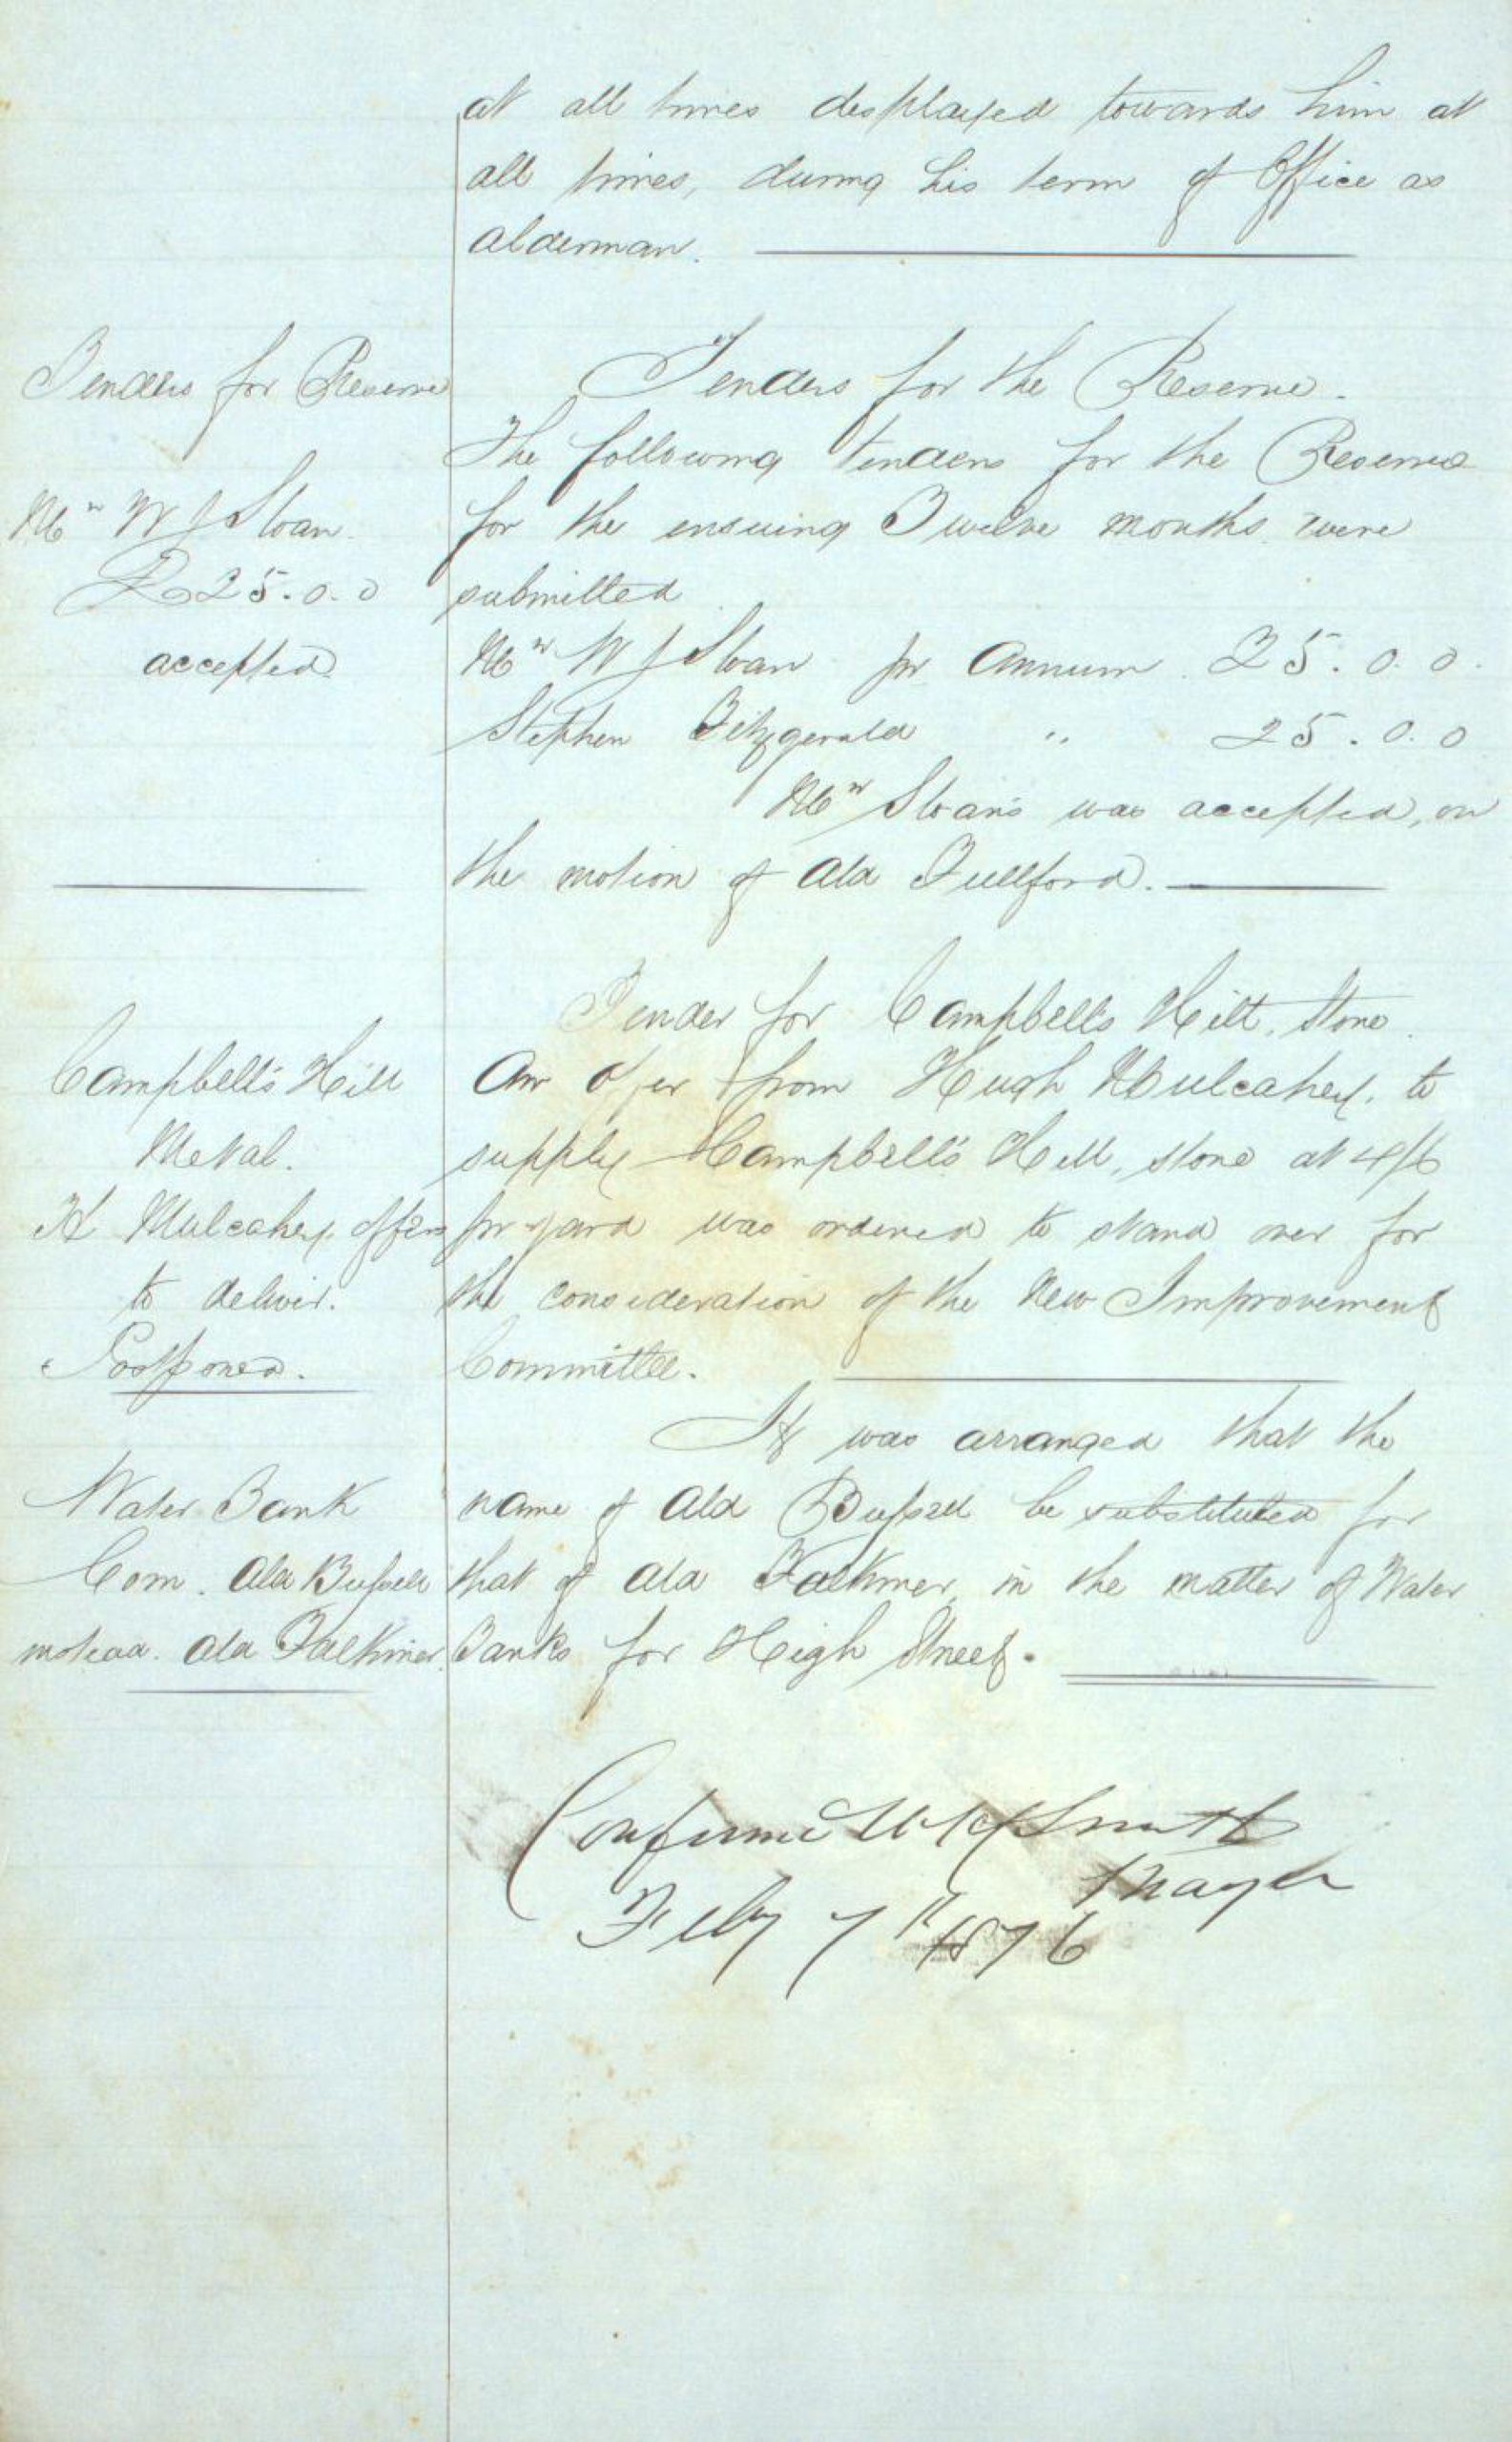 at all times displayed towards him at
all times, during his term of Office as
Alderman.
Tenders for Reserve
Mr W J Sloan
£25.0.0
accepted
Tenders for the Reserve.
The following Tenders for the Reserve
for the ensuing Twelve months were
submitted
Mr W J Sloan pr Annum 25.0.0.
Stephen Fitzgerald " 25.0.0
Mr Sloan's was accepted, on
the motion of Ald Fullford.
Campbell's Hill
Metal.
H Mulcahey offers
to deliver.
Postponed.
Tender for Campbells Hill, Stone.
An offer from Hugh Mulcahey, to
supply Campbell's Hill, stone at 4/6
pr yard was ordered to stand over for
the consideration of the New Improvement
Committee.
Water Bank
Com. Ald Bussell
instead. Ald Falkiner
It was arranged that the
name of Ald Bussell be substituted for
that of Ald Falkiner, in the matter of Water
Banks for High Street.
Confirmed Smith
Mayor
Feby 7th 1876